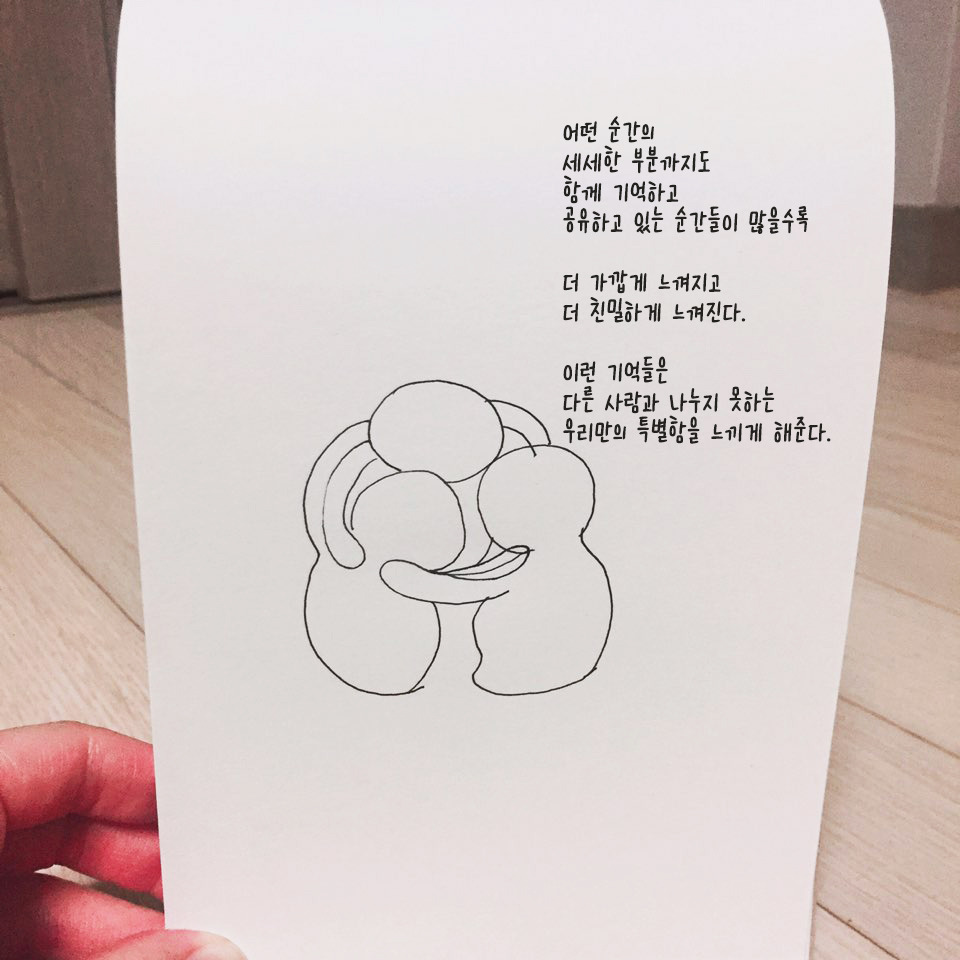 어떤 순간의
세세한 부분까지도
함께 기억하고
공유하고 있는 순간들이 많을수록
더 가깝게 느껴지고
더 친밀하게 느껴진다.
이런 기억들은
다른 사람과 나누지 못하는
우리만의 특별함을 느끼게 해준다.